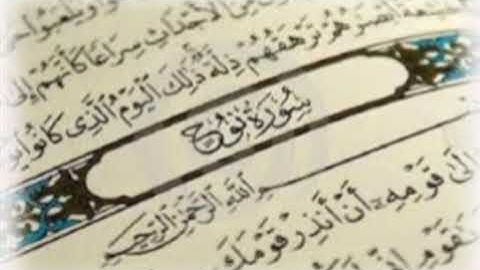 وَيَلْعَبُوا
مِنَ الْأَجْدَاثِ سِرَاعًا كَأَنَّهُمْ إِلَى
أَبْصَٰرُهُمْ تَرْهَقُهُمْ ذِلَّةٌ ذَٰلِكَ الْيَوْمُ الَّذِي كَانُوا
سُورَةُ نُوحٍ
بِسْمِ اللَّهِ الرَّحْمَٰنِ الرَّحِيمِ
إِلَىٰ قَوْمِهِۦ أَنْ أَنذِرْ قَوْمَكَ
يَٰقَوْمِ إِنِّي